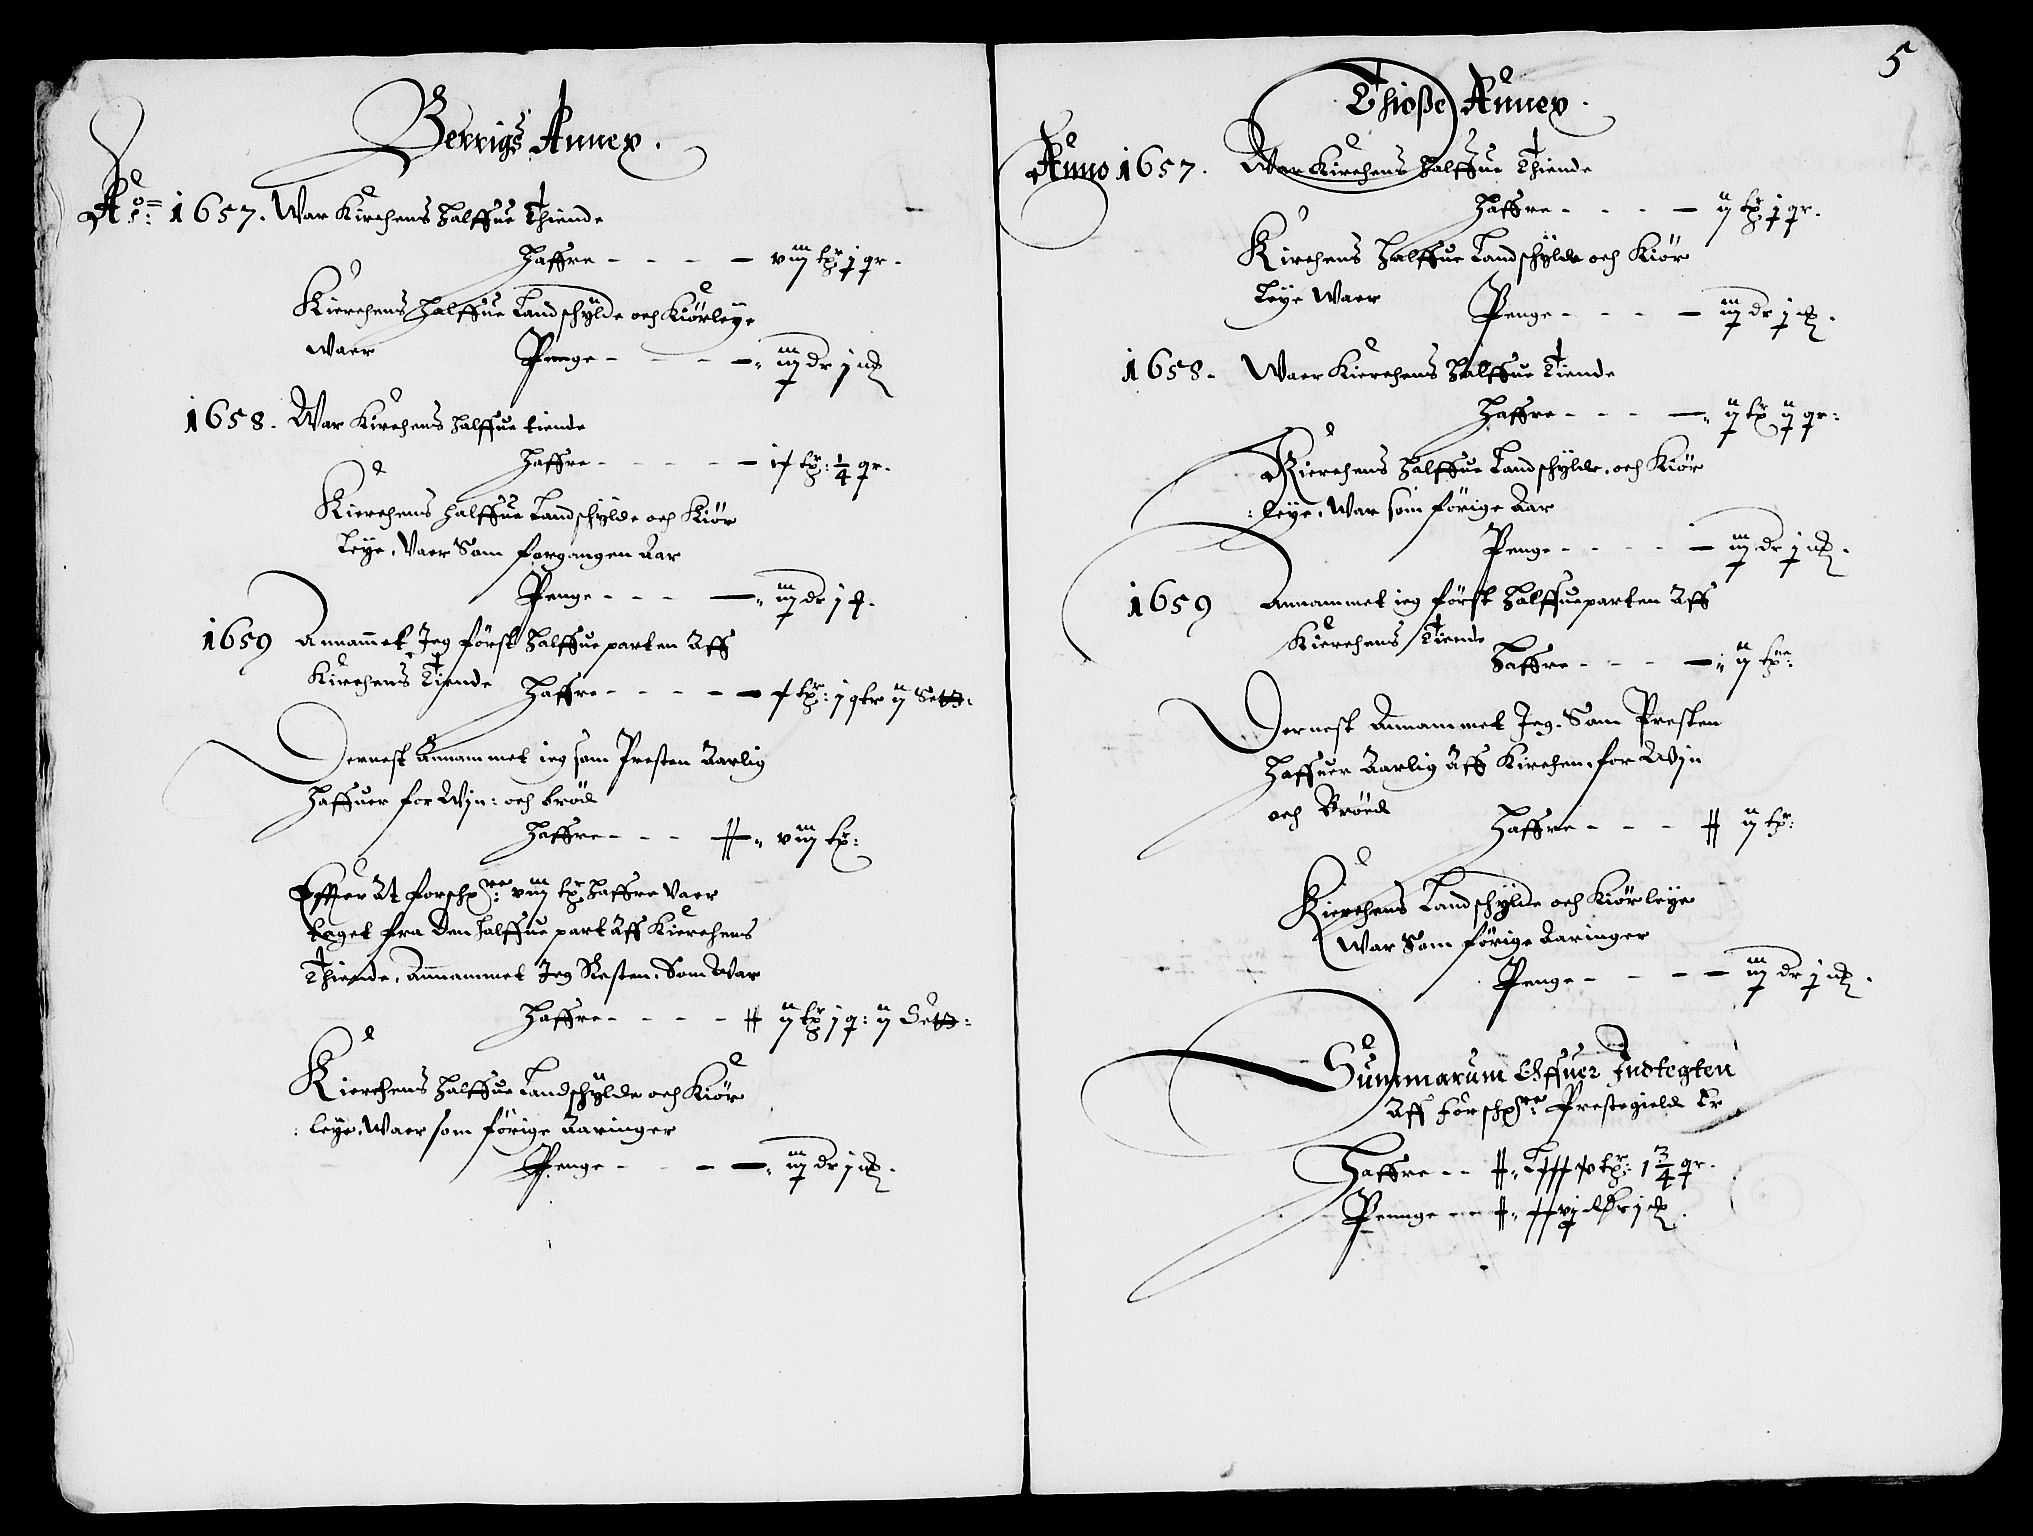 Berrigs Annex.
Aº: 1657. War Kirchens Halffue Thiende
Haffre - - - - viij tr j qr.
Kierchens Halffue Landschÿlde och Kiörleÿe
Waer Penge - - - - iij dr j
1658. War Kirchens Halffue tiende
Haffre - - - - tr: 1/4 qr.
Kierchens Halffue Landschÿlde och Kiör
leÿe, Vaer Som forgangen Aar
Penge - - - - iij dr j
1659 Annammet Jeg först Halffueparten Aff
Kirchens Tiende Haffre - - - - tr: j qtr ij
Dernest Annammet ieg som Presten Aarlig
Haffuer for Wjn: och bröd
Haffre - - - viij tr:
Effter At forschr: viij tr Haffre Vaer
taget fra Den Halffue part Aff Kierchens
Thiende, Annammet Jeg Resten, Som War
Haffre - - - - ij tr j q: ij
Kierchens Halffue Landschÿlde och Kiör
leÿe, Waer som förige Aaringer
Penge - - - iij dr j
5
Thioße Annex.
Anno 1657. War Kirchens Halffue Thiende
Haffre - - - - ij tr j qr.
Kirchens Halffue Landschÿlde och Kiör
leÿe Waer Penge - - - - iij dr j
1658. Waer Kierchens Halffue Tiende
Haffre - - - - ij tr ij qr:
Kierchens Halffue Landschÿlde, och Kiör
leÿe, War som förige Aar
Penge - - - - iij dr j
1659 Annammet ieg först Halffueparten Aff
Kierchens Tiende
Haffre - - - - ij
Dernest Annammet Jeg, Som Presten
Haffuer Aarlig Aff Kirchen, for Wjn
och Bröed
Haffre - - - ij tr:
Kierchens Landschÿlde och Kiörleÿe
War Som förige Aaringer
Penge - - - - iij dr j
Summarum Offuer Indtegten
Aff forschr: Prestegield Er
Haffre - - tr: 1 3/4 qr.
Pennge - - -